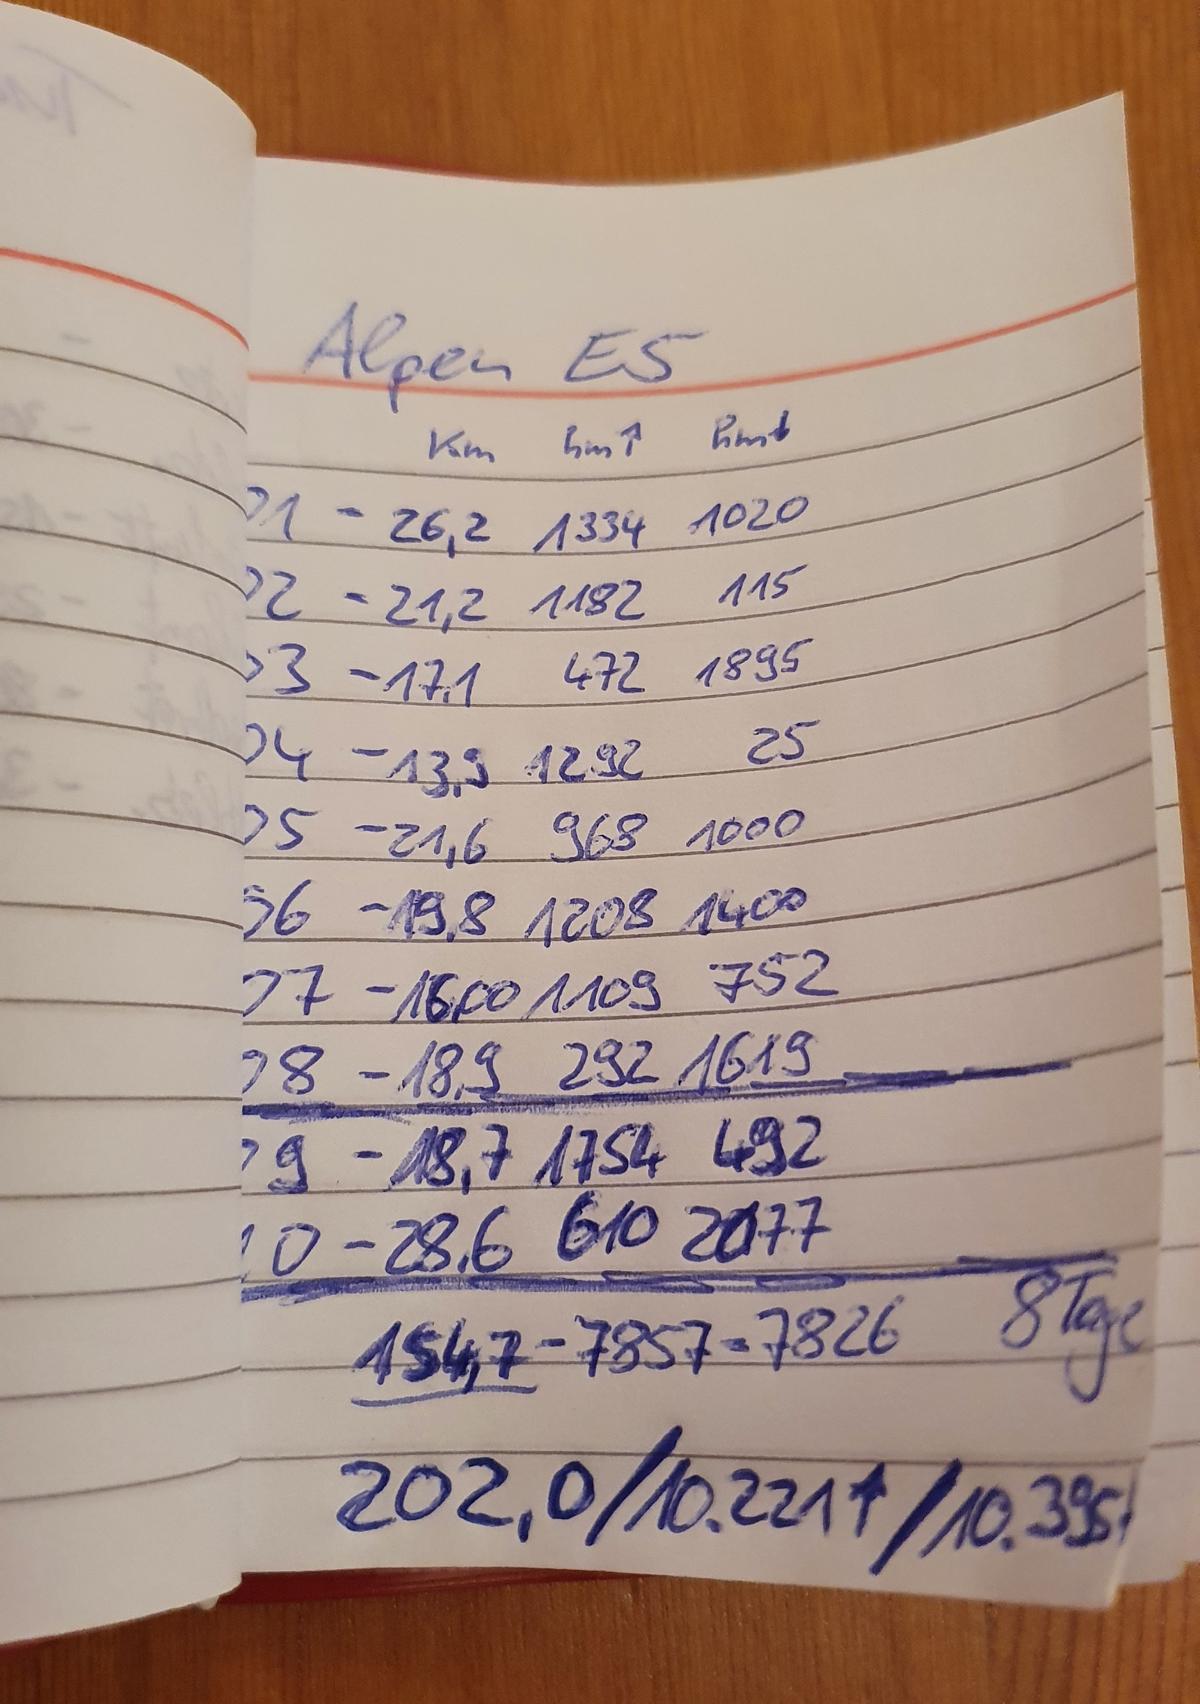 Alpen E5
Km hm↑ hm↓
01 - 26,2 1334 1020
02 - 21,2 1182 115
03 - 17,1 472 1895
04 - 13,9 1292 25
05 - 21,6 968 1000
06 - 19,8 1208 1400
07 - 16,00 1109 752
08 - 18,9 292 1619
09 - 18,7 1754 492
10 - 28,6 610 2077
154,7 - 7857 - 7826 8 Tage
202,0 / 10.221↑ / 10.395↓